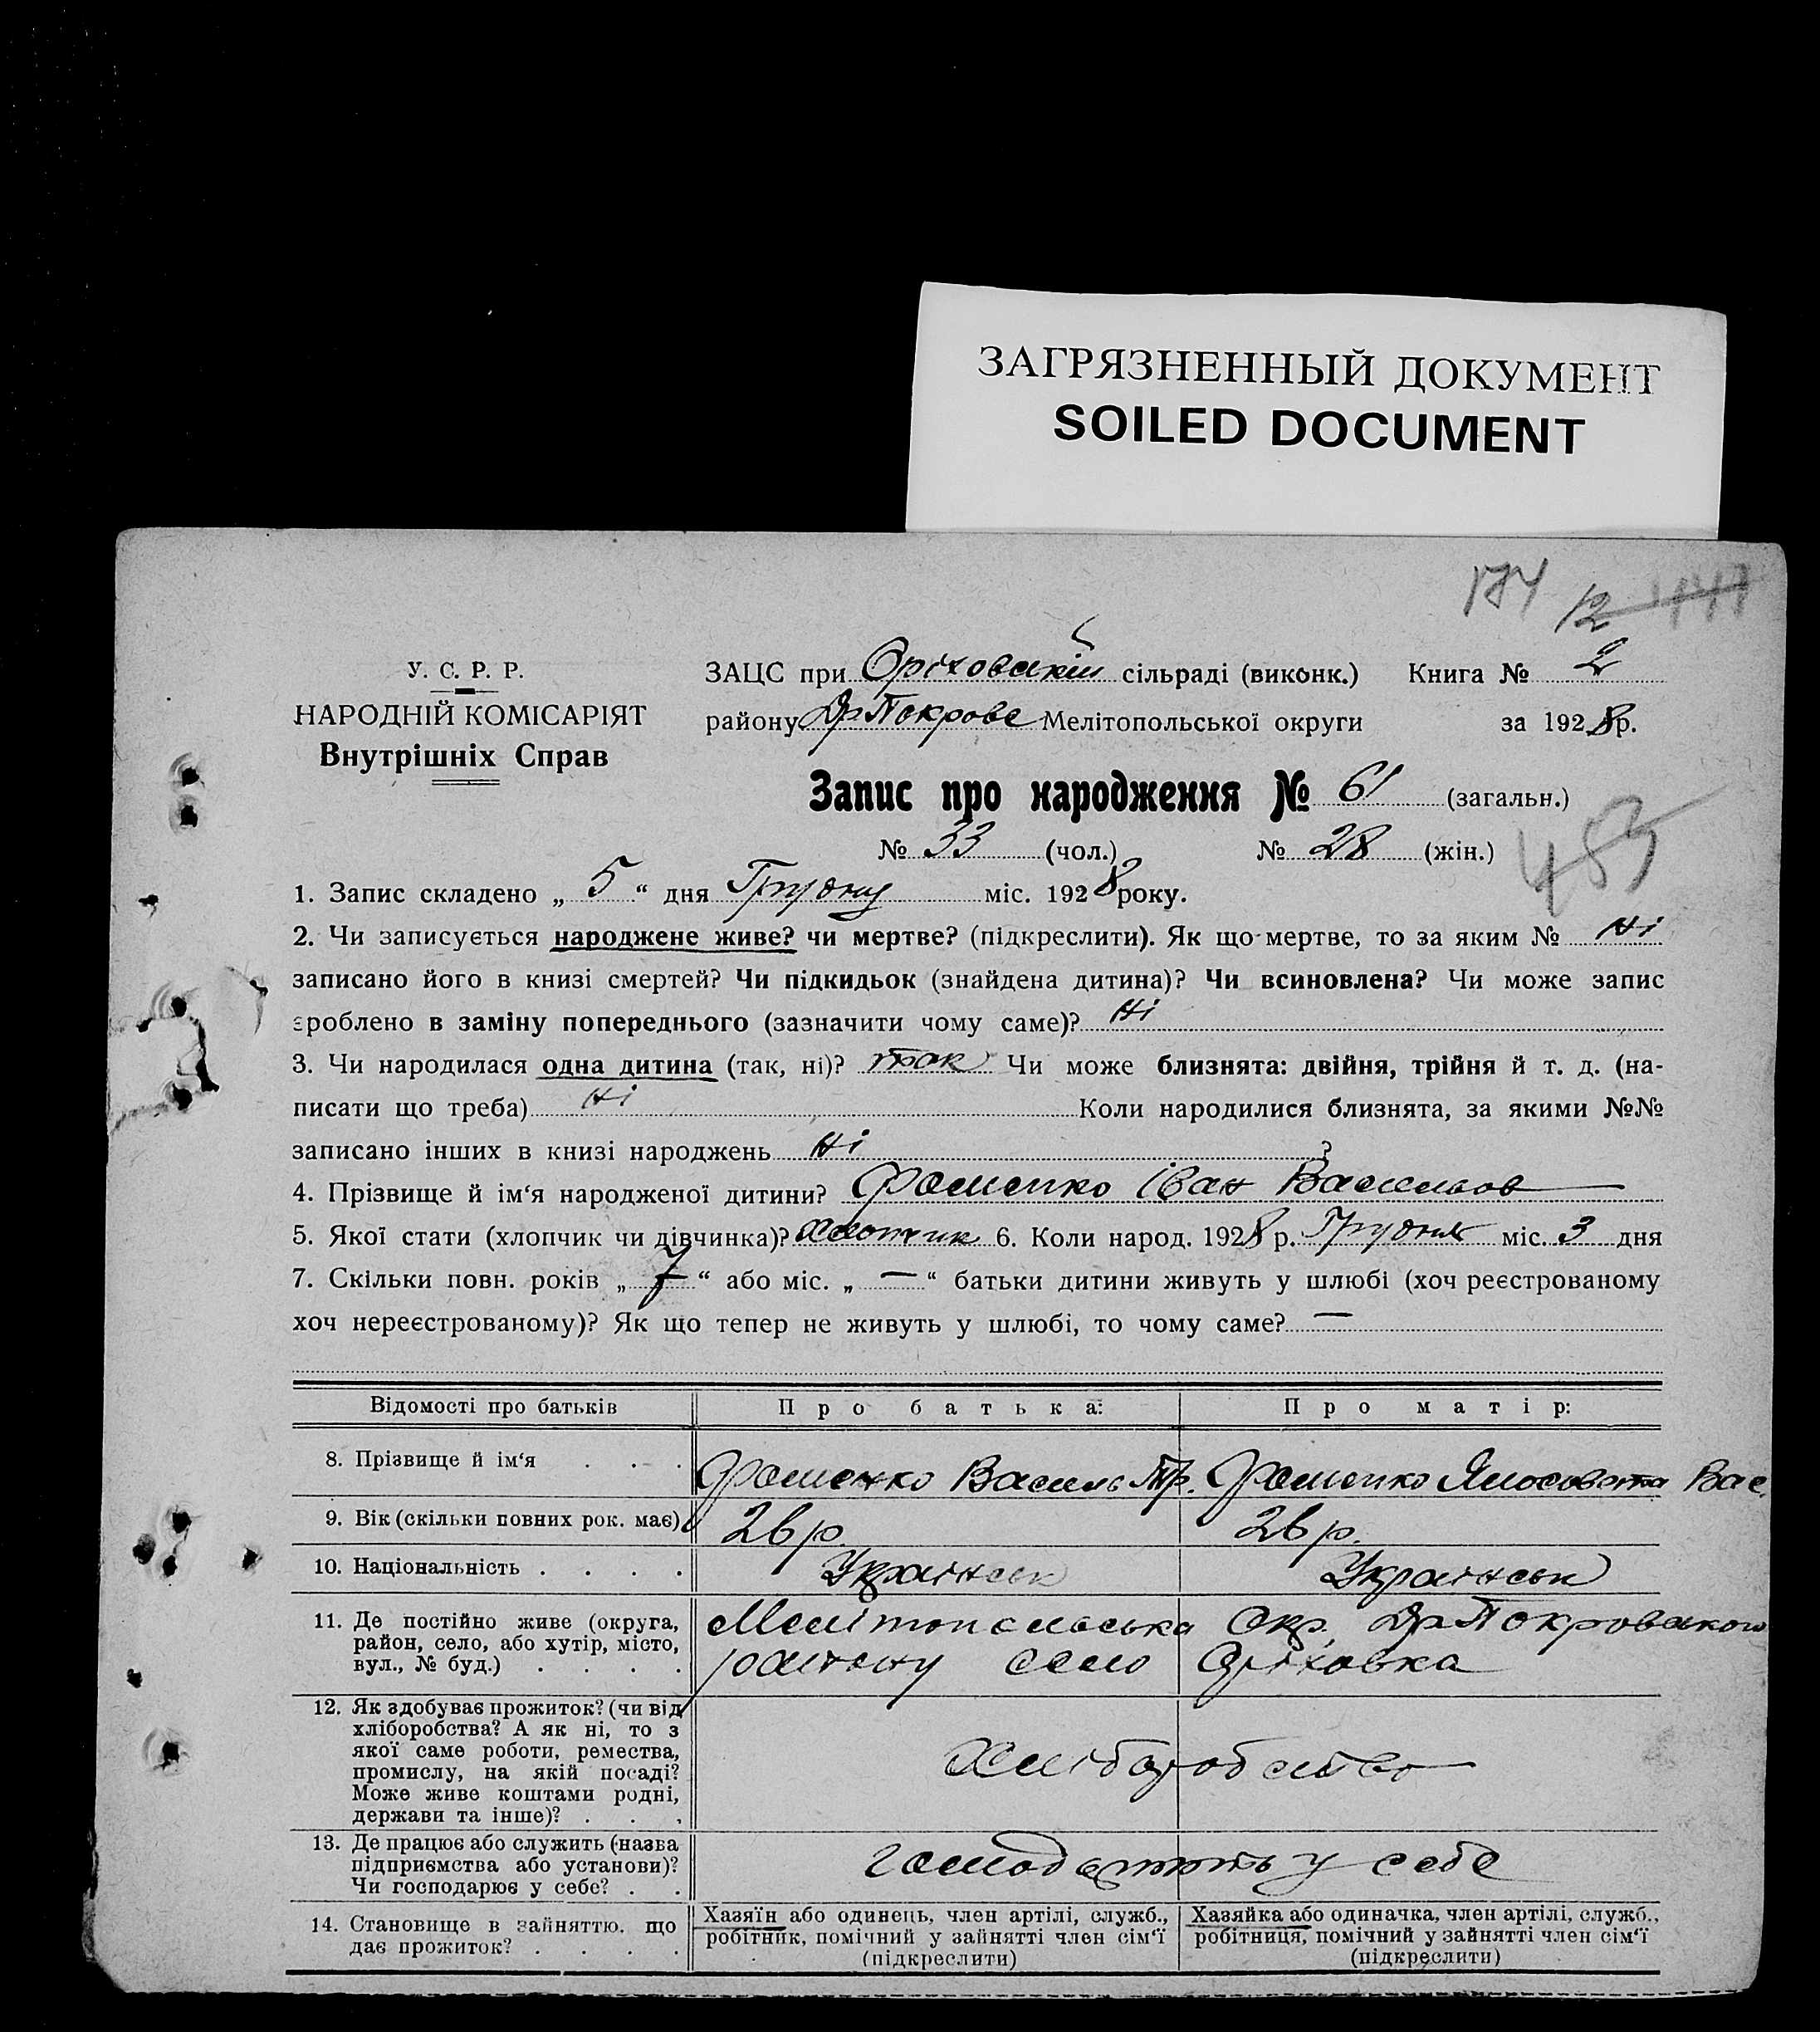 ЗАГРЯЗНЕННЫЙ ДОКУМЕНТ
SOILED DOCUMENT
174 12 1147
У. С. Р. Р.
НАРОДНІЙ КОМІСАРІЯТ
Внутрішніх Справ
ЗАЦС при Оріховській сільраді (виконк.) Книга № 2
району Др Покровс Мелітопольської округи за 1928 р.
Запис про народження № 61 (загальн.)
№ 33 (чол.) № 28 (жін.)
1. Запис складено „ 5 “ дня Грудня міс. 1928 року.
2. Чи записується народжене живе? чи мертве? (підкреслити). Як що мертве, то за яким № Ні
записано його в книзі смертей? Чи підкидьок (знайдена дитина)? Чи всиновлена? Чи може запис
зроблено в заміну попереднього (зазначити чому саме)? Ні
3. Чи народилася одна дитина (так, ні)? так Чи може близнята: двійня, трійня й т. д. (на-
писати що треба) Ні Коли народилися близнята, за якими №№
записано інших в книзі народжень Ні ?
4. Прізвище й ім‘я народженої дитини? Фоменко Іван Васильов
5. Якої стати (хлопчик чи дівчинка)? Хлопчик 6. Коли народ. 1928 р. Грудня міс. 3 дня
7. Скільки повн. років „ 7 “ або міс. „ — “ батьки дитини живуть у шлюбі (хоч реєстрованому
хоч нереєстрованому)? Як що тепер не живуть у шлюбі, то чому саме? —
Відомості про батьків Про батька: Про матір:
8. Прізвище й ім‘я . . . Фоменко Василь Тр. Фоменко Вас.
9. Вік (скільки повних рок. має) 26 р. 26 р.
10. Національність . . . . Українськ Українськ
11. Де постійно живе (округа,
район, село, або хутір, місто,
вул., № буд.) . . . .
Мелітопольська Окр. Др Покровського
району село Оріховка
12. Як здобуває прожиток? (чи від
хліборобства? А як ні, то з
якої саме роботи, ремества,
промислу, на якій посаді?
Може живе коштами родні,
держави та інше)? . . .
Хліборобство
13. Де працює або служить (назва
підприємства або установи)?
Чи господарює у себе? . .
у себе
14. Становище в зайняттю, що
дає прожиток? . . . .
Хазяїн або одинець, член артілі, служб.,
робітник, помічний у зайнятті член сім‘ї
(підкреслити)
Хазяйка або одиначка, член артілі, служб.,
робітниця, помічний у зайнятті член сім‘ї
(підкреслити)